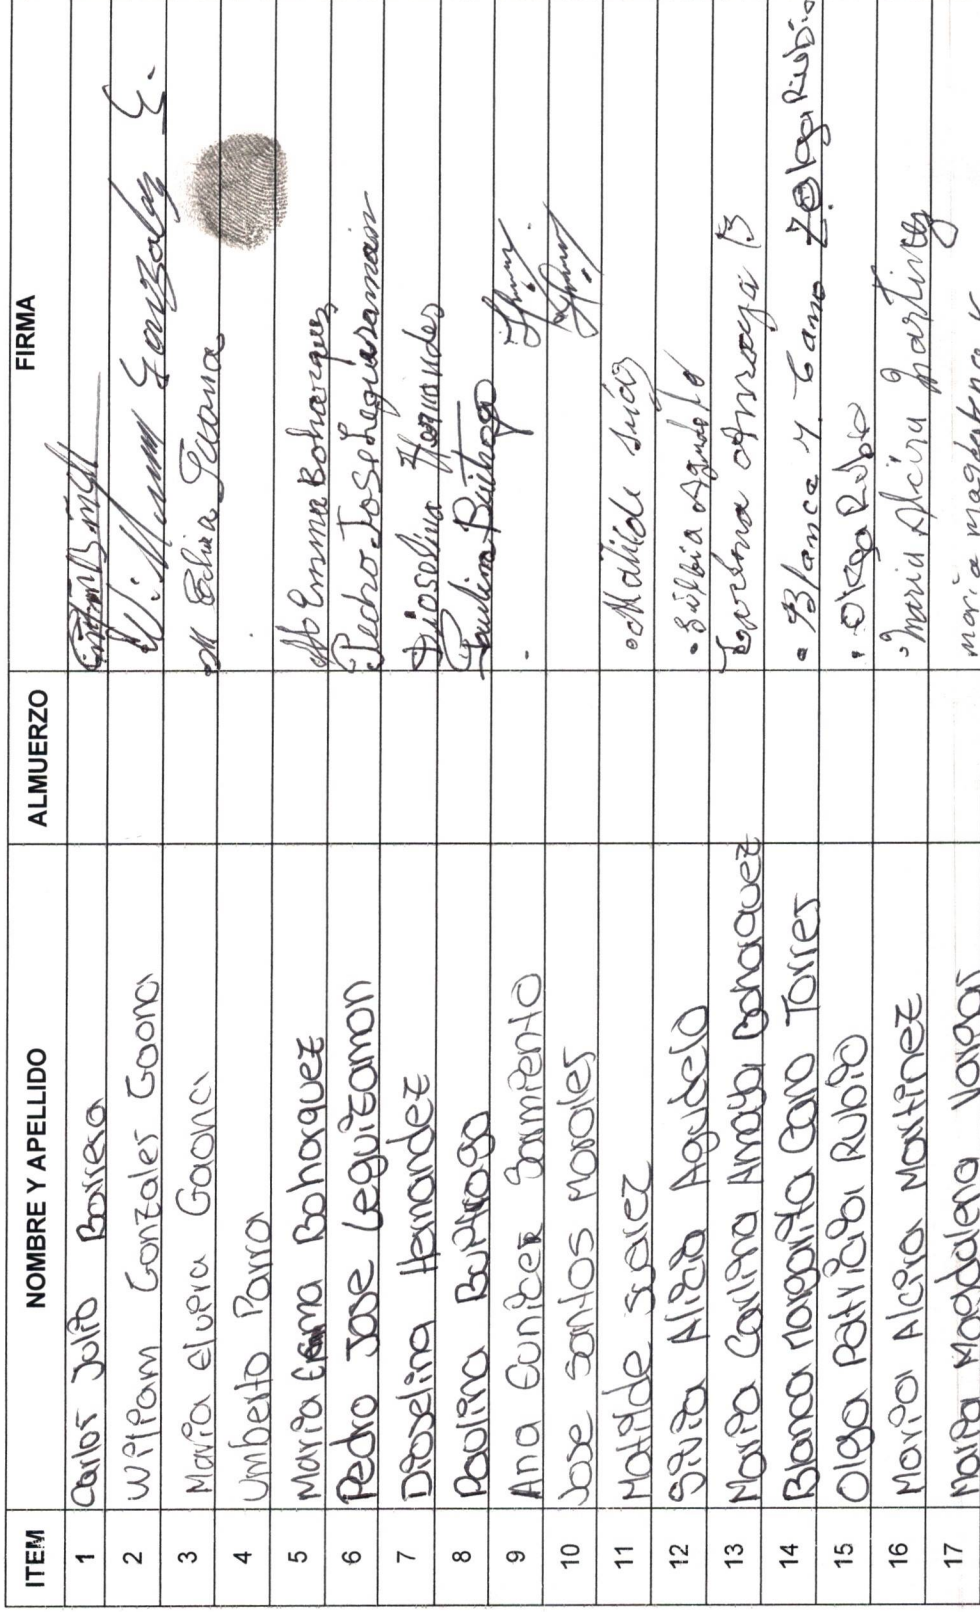 ITEM NOMBRE Y APELLIDO ALMUERZO FIRMA
1 Carlos Julio Barrera
2 William Gonzales Gaona William Gonzalez G.
3 Maria elvira Gaona Gaona
4 Umberto Parra
5 Maria Emma Bohorquez Emma Bohorquez
6 Pedro Jose Leguizamon Pedro Jose Leguizamon
7 Dioselina Hernandez Dioselina Hernandes
8 Paulina Buitrago Paulina Buitrago
9 Ana Eunicer Sarmiento
10 Jose Santos Morales
11 Matilde Suarez Matilde
12 Silvia Alicia Agudelo Silbia Agudelo
13 Maria Carlina Amaya Bohorquez
14 Blanca Margarita Caro Torres Blanca M. Caro
15 Olga Patricia Rubio Olga Rubio
16 Maria Alcira Martinez Maria Alcira Martinez
17 Maria Magdalena Vargas maria magdalena